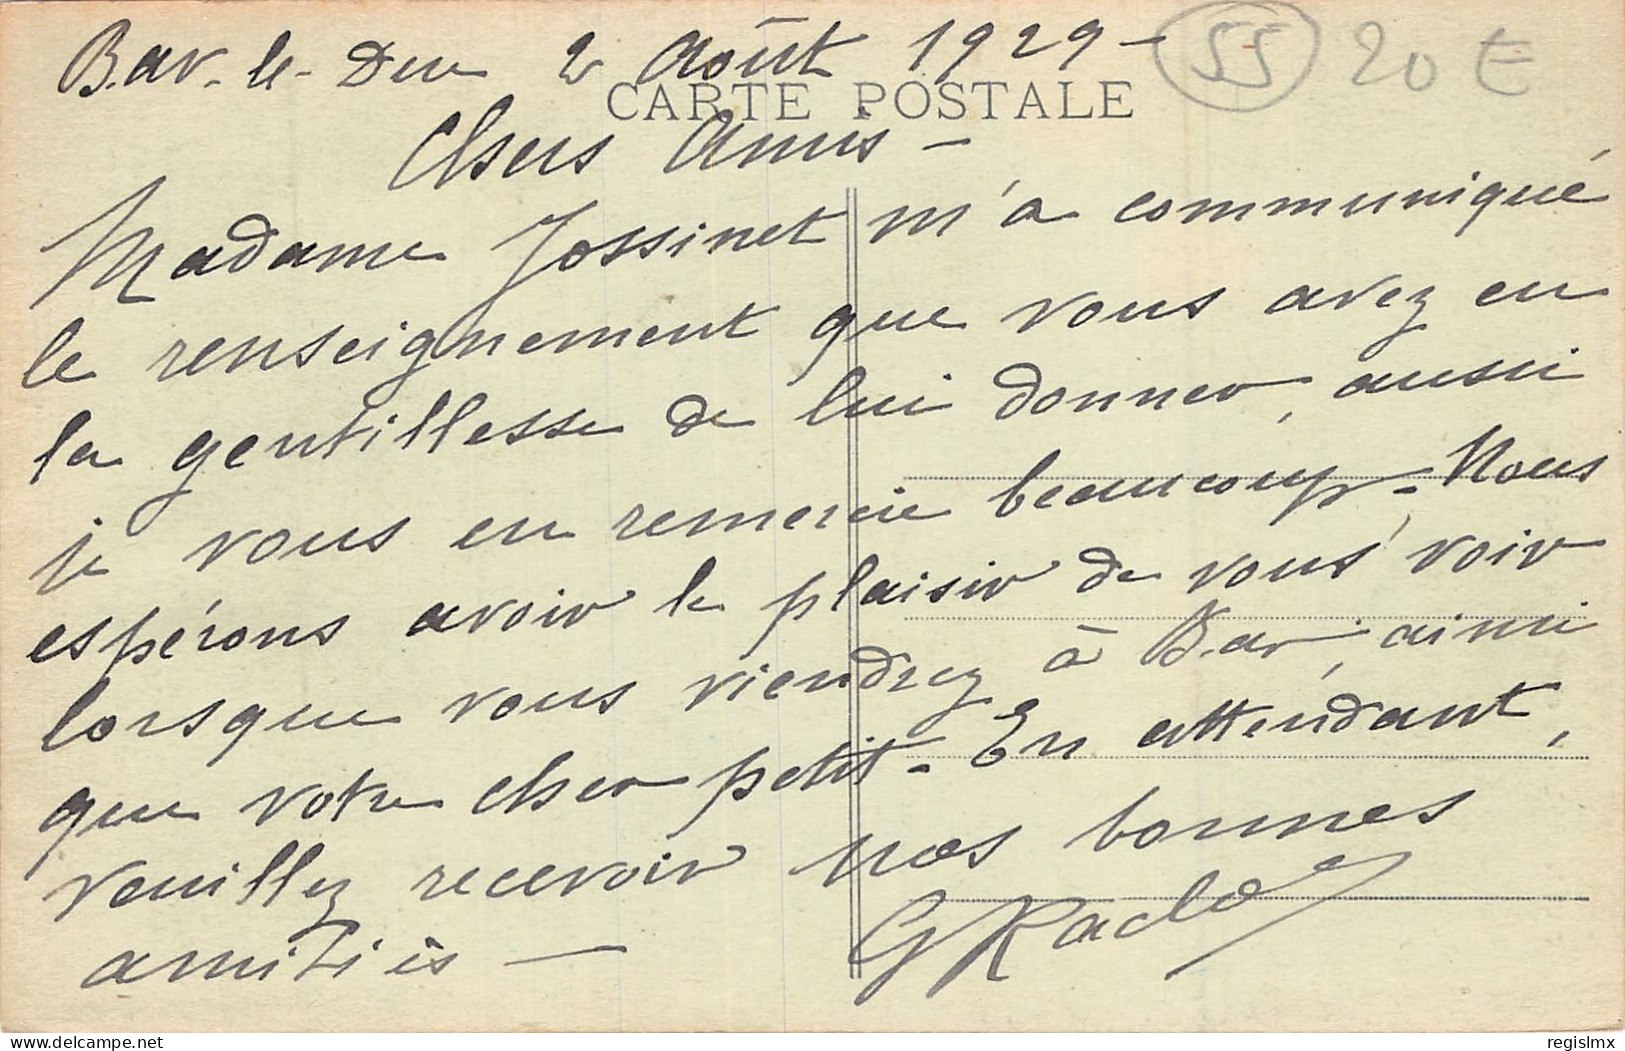 Bar-le-Duc 2 Août 1929 -
55 20 E
CARTE POSTALE
Chers Amis -
Madame Jossinet m'a communiqué
le renseignement que vous avez eu
la gentillesse de lui donner, aussi
je vous en remercie beaucoup. Nous
espérons avoir le plaisir de vous voir
lorsque vous viendrez à Bar, ainsi
que votre cher petit. En attendant,
veuillez recevoir nos bonnes
amitiés -
delcampe.net
regislmx